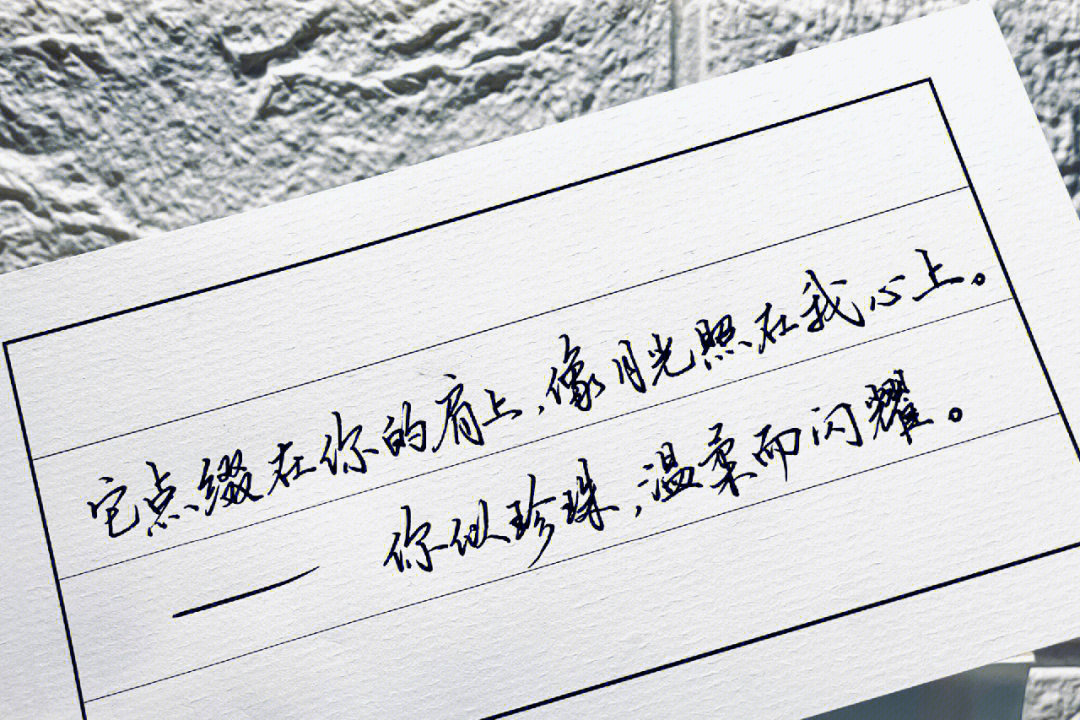 它点缀在你的肩上,像月光照在我心上。
—— 你似珍珠,温柔而闪耀。